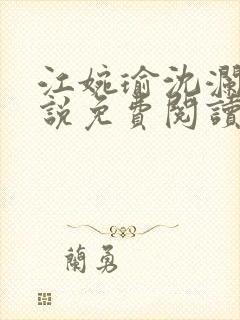 江婉瑜沈瀾
說免費閱讀
蘭勇